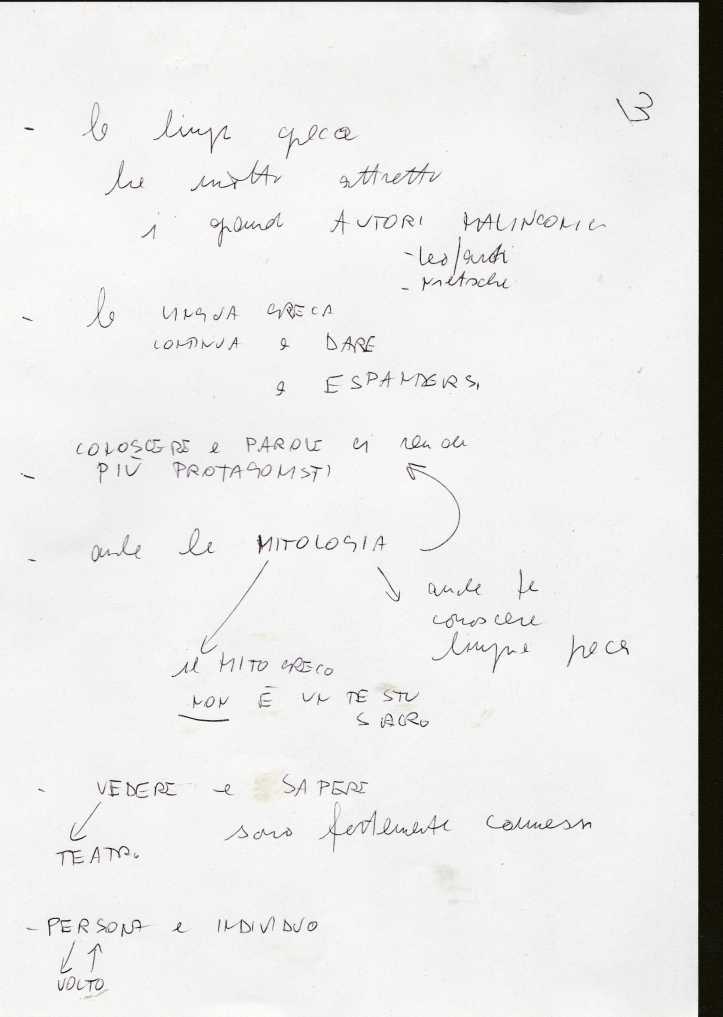 13
- la lingua greca
ha molto attratto
i grandi AUTORI MALINCONICI
- leopardi
- nietzsche
- la LINGUA GRECA
CONTINUA a DARE
a ESPANDERSI
CONOSCERE le PAROLE ci rende
- PIÙ PROTAGONISTI
- anche la MITOLOGIA
anche fa
conoscere
lingua greca
il MITO GRECO
NON È UN TESTO
SACRO
- VEDERE e SAPERE
sono fortemente connessi
TEATRO
- PERSONA e INDIVIDUO
VOLTO